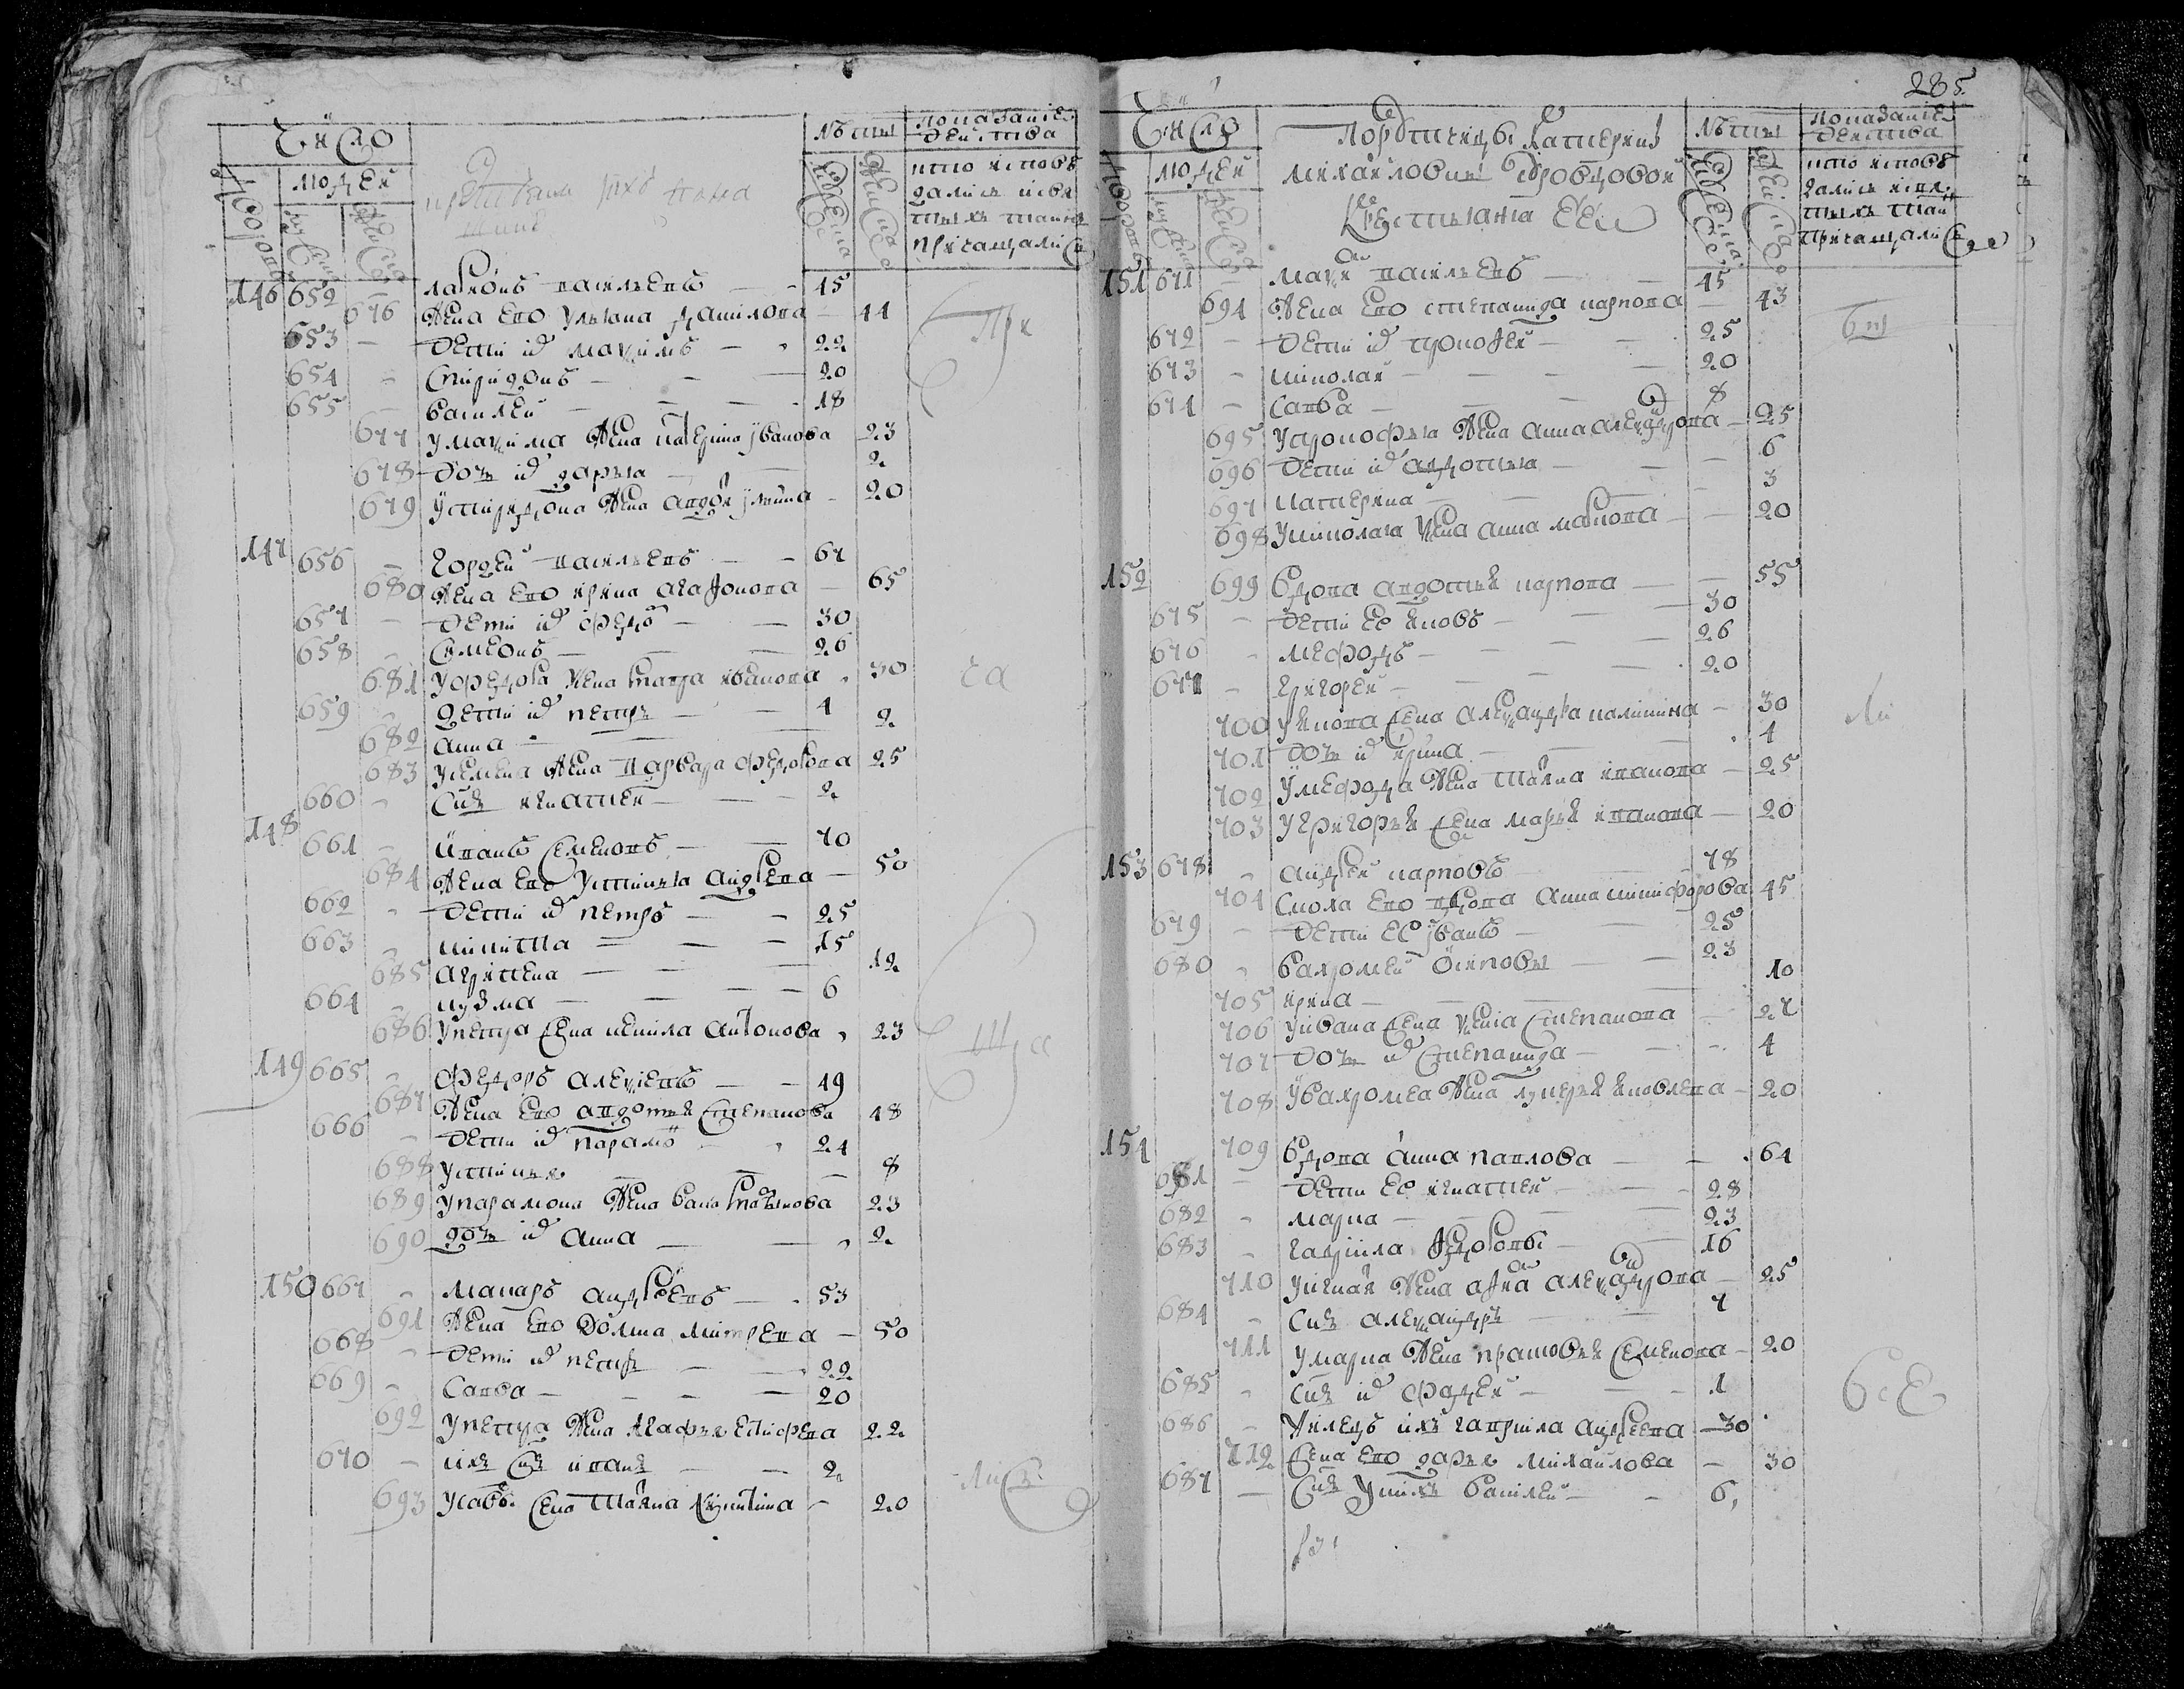 Число
Лѣты
показаніе
действа
людей
кто исповѣ
дались и свя
тыхъ таинъ
причащалис
146 652 - Ларионъ васильевъ - 45
676 жена ево ульяна данилова - 44
653 - дети их максимъ - 22
654 - спиридонъ - 20
655 - василей - 18
677 у максима жена катерина иванова 23
678 дочь их дарья - 2
679 у спиридона жена 20
147 656 - гордей васильевъ - 67
680 жена ево ирина агафонова - 65
657 - дети их федоръ - 30
658 - симеонъ - 26
681 у федора жена иванова 30
659 - дети их петръ - 4
682 анна - 2
683 у семена жена варвара федорова 25
660 - сынъ игнатей - 2
148 661 - иванъ семеновъ - 70
684 жена ево устинья андреева - 50
662 - дети их петръ - 25
663 - никита - 15
685 агрипена - 12
664 - кузма - 6
686 у петра жена антонова 23
149 665 - федоръ алексеевъ - 49
687 жена ево авдотья степанова 48
666 - дети их парамонъ 24
688 устинья - 8
689 у парамона жена 23
690 дочь их анна - 2
150 667 - макаръ андреевъ - 53
691 жена ево домна - 50
668 - дети их петръ - 22
669 - савва - 20
692 у петра жена агафья 22
670 - ихъ сынъ иванъ - 2
693 у савы жена татьяна никитина - 20
При
ча
ща
лись
285
Число
Порутчицы катерины
михайловны
крестьяна ее
Лѣты
показаніе
действа
людей
кто исповѣ
дались и свя
тыхъ таин
причащалис
151 671 - максим васильевъ - 45
694 жена ево степанида карпова - 43
672 - дети их прокофей - 25
673 - николай - 20
674 - савва - 8
695 у прокофья жена анна александрова - 25
696 дети их авдотья - 6
697 катерина - 3
698 у николая жена анна маркова - 20
152 699 вдова авдотья карпова - 55
675 - дети ее яковъ - 30
676 - мефодъ - 26
677 - григорей - 20
700 у якова жена александра калинина - 30
701 дочь их ирина - 4
702 у мефода жена татьяна иванова - 25
703 у григорья жена марья иванова - 20
153 678 - андрей карповъ - 78
704 сноха ево вдова анна никифорова 45
679 - дети ее иванъ - 25
680 - вахромей осиповы - 23
705 ирина - 10
706 у ивана жена степанова - 27
707 дочь их степанида - 4
708 у вахромея жена лукерья яковлева - 20
154 709 вдова анна павлова - 64
681 - дети ее игнатей - 28
682 - марка - 23
683 - гаврила федоровы - 16
710 у игнатя жена александрова - 25
684 - сынъ александръ - 7
711 у марка жена прасковья семенова - 20
685 - сынъ их фадей - 1
686 - жилецъ ихъ гаврила андреева - 30
712 жена ево дарья михайлова - 30
687 - сынъ у нихъ василей - 6
бы
ли
все